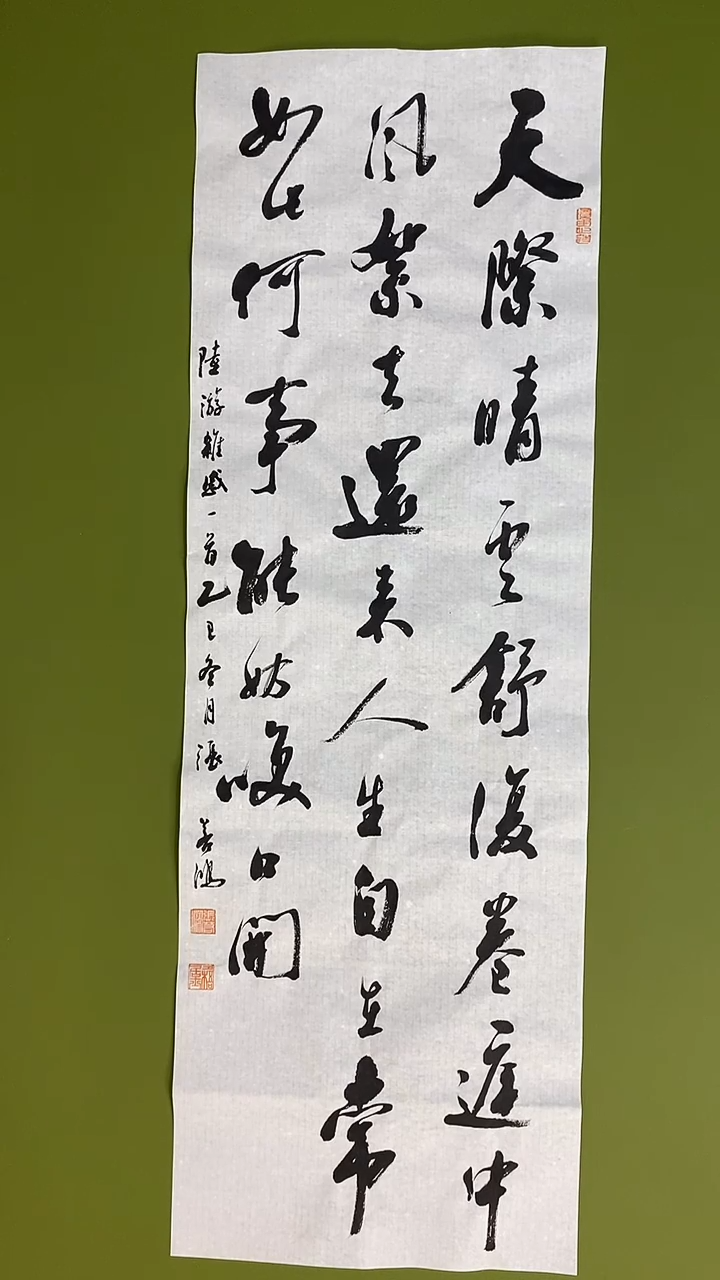 天際晴云舒復卷庭中
風絮去還來人生自在常
如此何事能妨咲口開
陸游雜感一首乙巳冬月張善鴻